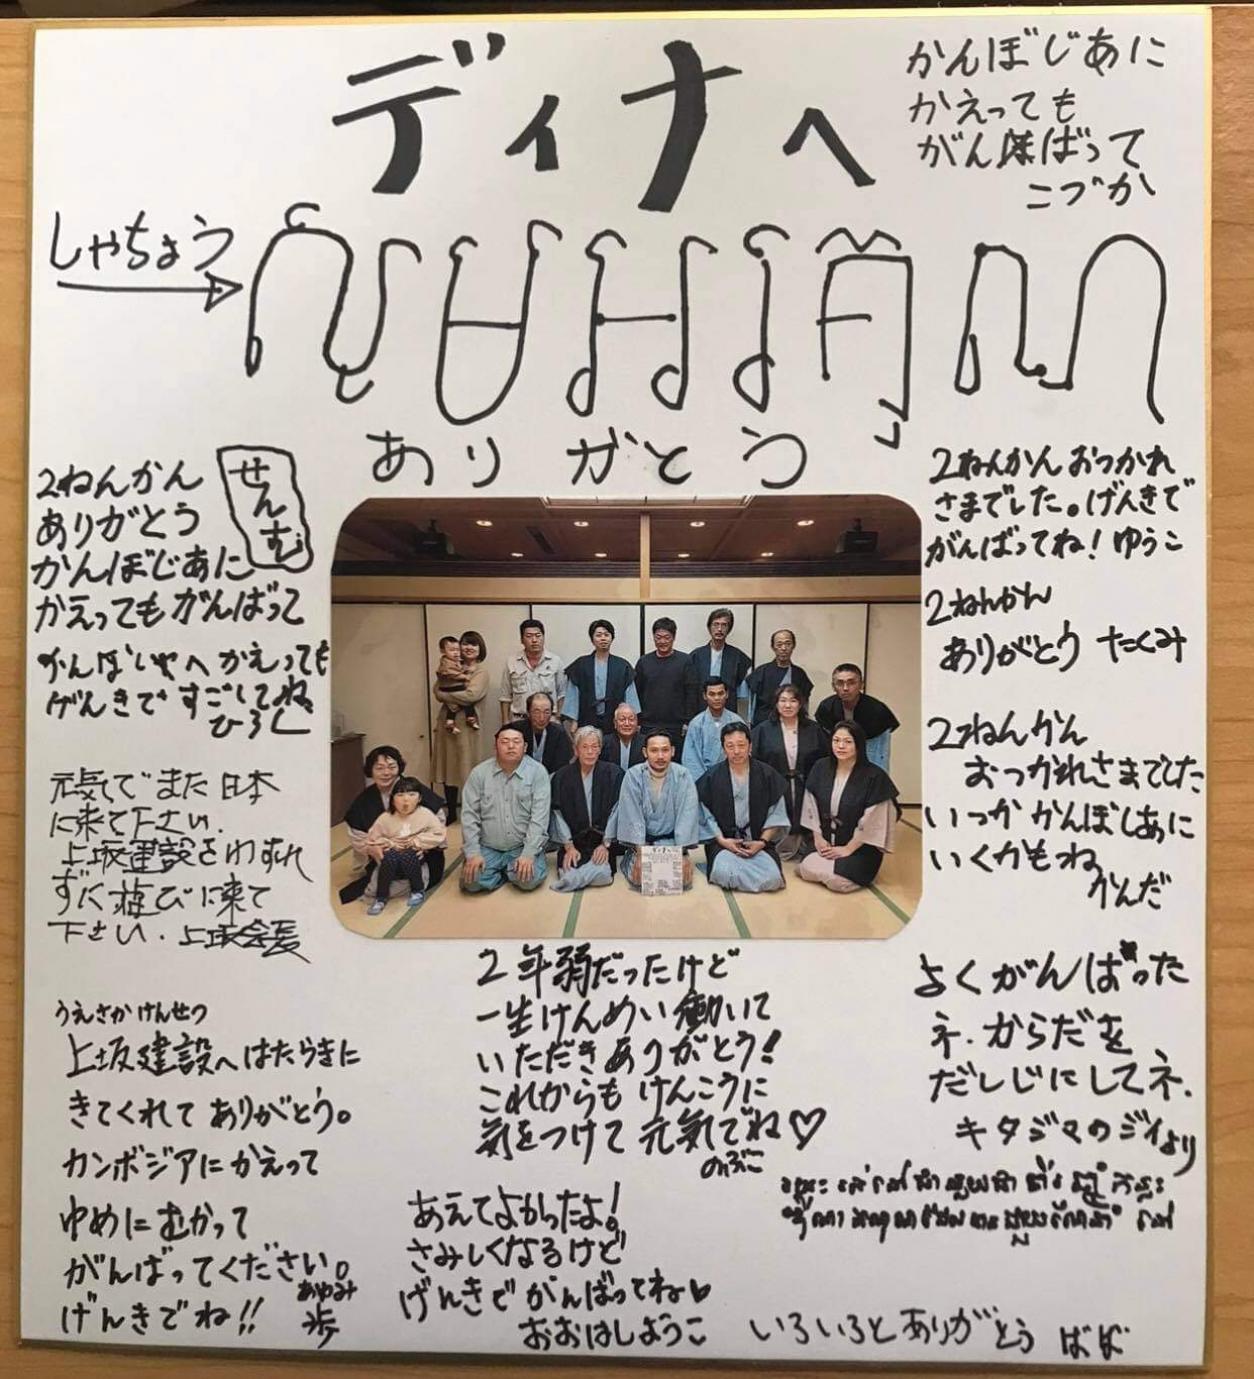 ディナへ
かんぼじあに
かえっても
がんばって
こづか
しゃちょう
ありがとう
せんむ
2ねんかん
ありがとう
かんぼじあに
かえってもがんばって
かえっても
げんきですごしてね
ひろし
元気でまた日本
に来て下さい.
上坂建設をわすれ
ずに遊びに来て
下さい.上坂会長
うえさかけんせつ
上坂建設へはたらきに
きてくれてありがとう。
カンボジアにかえって
ゆめにむかって
がんばってください。
げんきでね!!
あゆみ
歩
2年弱だったけど
一生けんめい働いて
いただきありがとう!
これからもけんこうに
気をつけて元気でね♡
のぶこ
あえてよかったよ!
さみしくなるけど
げんきでがんばってね♥
おおはしようこ
2ねんかんおつかれ
さまでした。げんきで
がんばってね!ゆうこ
2ねんかん
ありがとう たくみ
2ねんかん
おつかれさまでした
いつかかんぼじあに
いくかもね
かんだ
よくがんばった
ネ.からだを
だいじにしてネ.
キタジマのジイより
いろいろとありがとう ばば